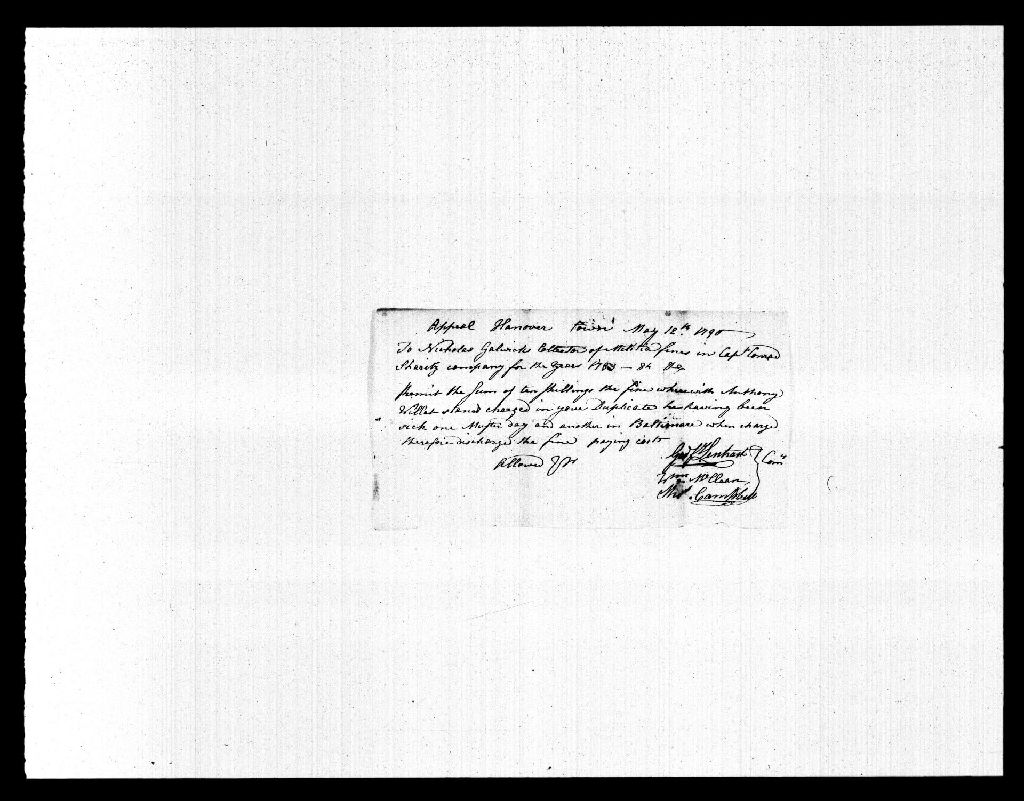 Appeal Hanover Town May 12th 1790
To Nicholas Gelwicks Collector of Militia fines in Capt Conrad
Sharitz company for the year 1783 — 84 &c
Remit the Sum of ten Shillings the fine wherewith Anthony
Willet stands charged in your Duplicate he having been
sick one Muster day and another in Baltimore when charged
therefore discharge the fine paying costs
Allowed
Wm McClean
Campbell